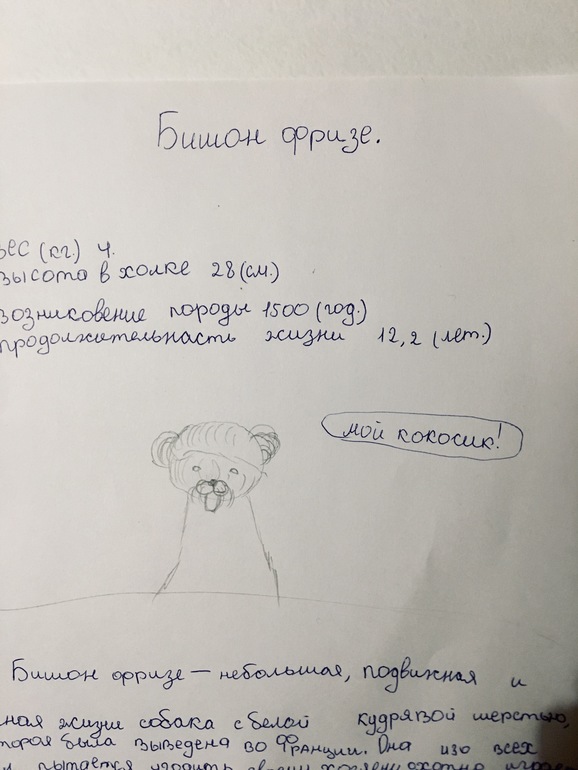 Бишон фризе.
вес (кг.) 4.
высота в холке 28 (см.)
возниковение породы 1500 (год.)
продолжительность жизни 12,2 (лет.)
мой кокосик!
Бишон фризе — небольшая, подвижная и
ная жизни собака с белой кудрявой шерстью,
торая была выведена во Франции. Она изо всех
пытается угодить своим